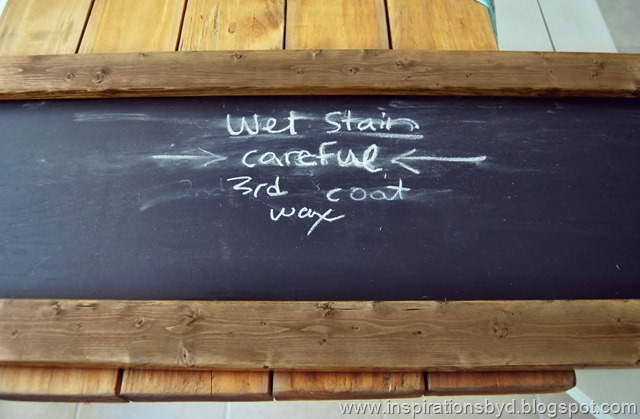 Wet Stain
→ careful ←
3rd coat
wax
www.inspirationsbyd.blogspot.com